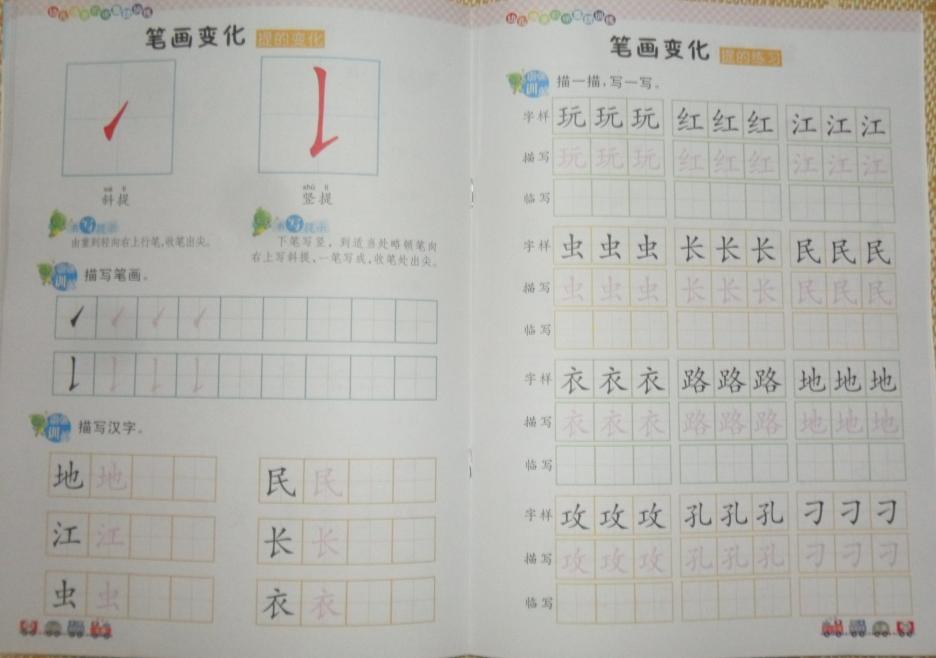 笔画变化 提的变化
xié tí
斜提
shù tí
竖提
书写提示
由重到轻向右上行笔,收笔出尖。
书写提示
下笔写竖,到适当处略顿笔向
右上写斜提,一笔写成,收笔处出尖。
描写笔画。
描写汉字。
地 地
民 民
江 江
长 长
虫 虫
衣 衣
笔画变化 提的练习
描一描,写一写。
字样 玩 玩 玩 红 红 红 江 江 江
描写 玩 玩 玩 红 红 红 江 江 江
临写
字样 虫 虫 虫 长 长 长 民 民 民
描写 虫 虫 虫 长 长 长 民 民 民
临写
字样 衣 衣 衣 路 路 路 地 地 地
描写 衣 衣 衣 路 路 路 地 地 地
临写
字样 攻 攻 攻 孔 孔 孔 刁 刁 刁
描写 攻 攻 攻 孔 孔 孔 刁 刁 刁
临写